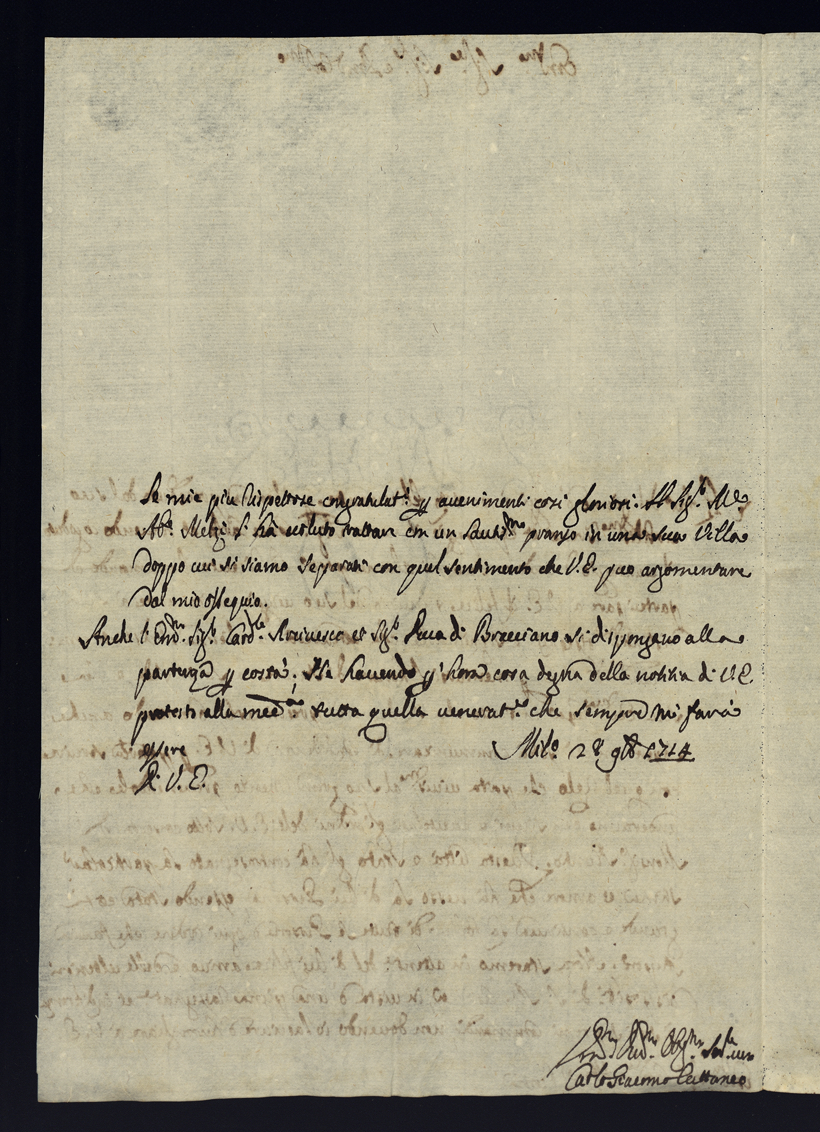 le mie piu rispettose congratulat.ⁱ p avenimenti cosi gloriosi. Il Sig.ʳ M.ᵉ
Ab.ᵉ Melzi hà voluto trattar con un laut.ᵐᵒ pranzo in una sua Villa
doppo cui si siamo separati con quel sentimento che V.E. puo argomentare
dal mio ossequio.
Anche l'Em.ᵐᵒ Sig.ʳ Card.ˡᵉ Arcivesco et Sig.ʳ Duca di Bracciano si dispongano alla
partenza p costà; Ne havendo p hora cosa degna della notitia di V.E.
protesto alla med.ᵐᵃ tutta quella venerat.ⁿᵉ che sempre mi farà
essere Mil.º 28 9bre 1714
Di V. E.
Carlo Giacomo Cattaneo